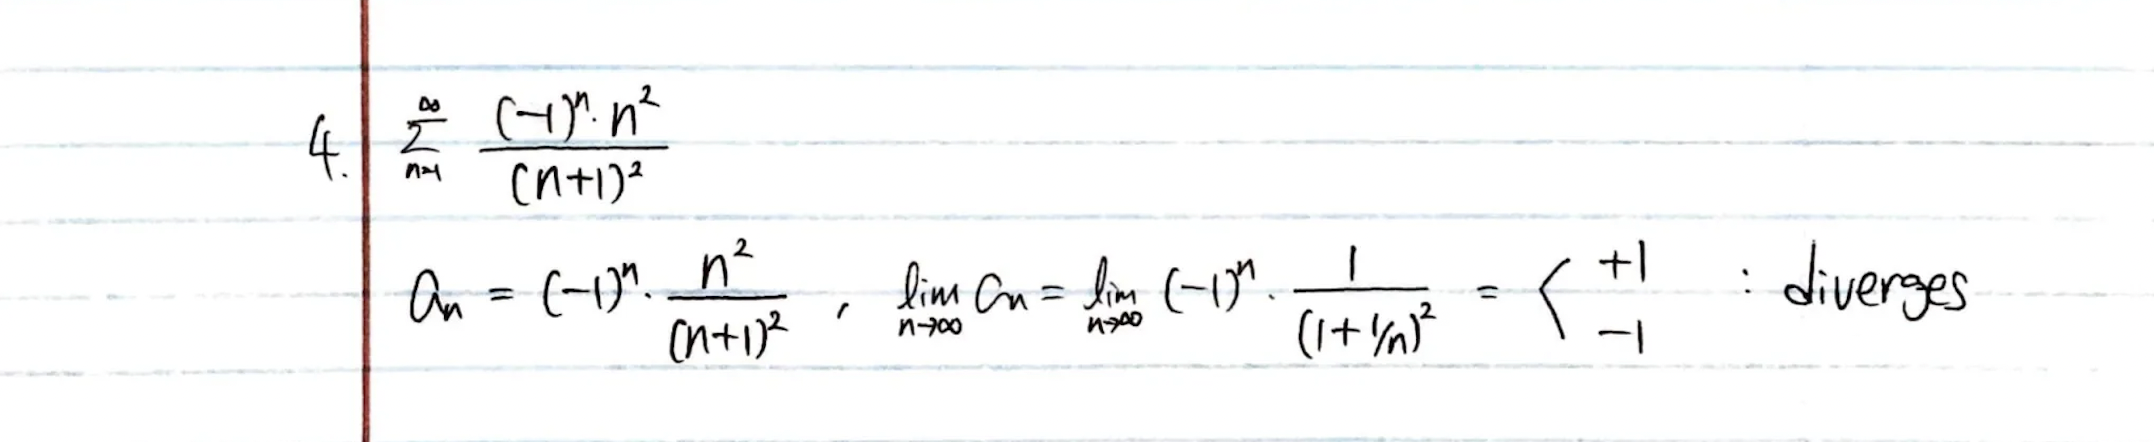 4. ∞ Σ n=1 (-1)ⁿ · n² / (n+1)²
aₙ = (-1)ⁿ · n² / (n+1)² , lim n→∞ aₙ = lim n→∞ (-1)ⁿ · 1 / (1+1/n)² = < +1 -1 : diverges